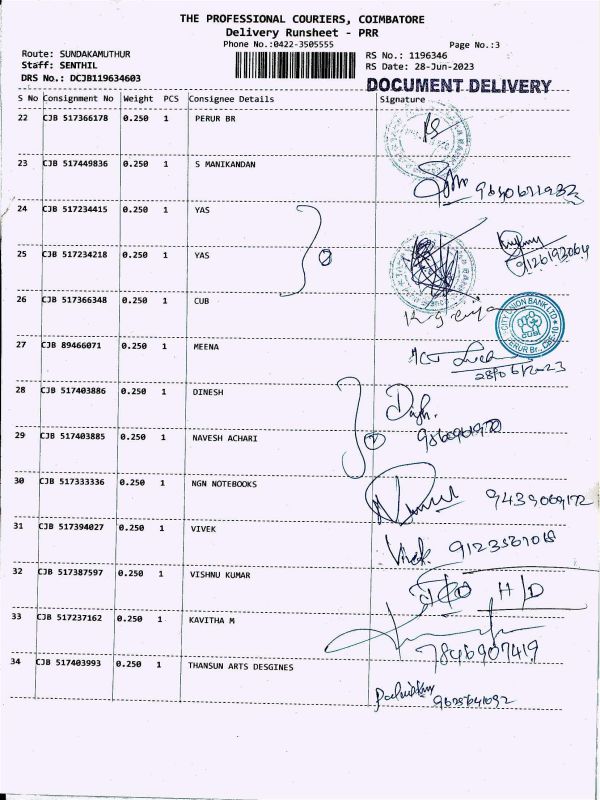 THE PROFESSIONAL COURIERS, COIMBATORE
Delivery Runsheet - PRR
Phone No.:0422-3505555
Page No.:3
Route: SUNDAKAMUTHUR
RS No.: 1196346
Staff: SENTHIL
RS Date: 28-Jun-2023
DRS No.: DCJB119634603
DOCUMENT DELIVERY
S No Consignment No Weight PCS Consignee Details Signature
22 CJB 517366178 0.250 1 PERUR BR
23 CJB 517449836 0.250 1 S MANIKANDAN
24 CJB 517234415 0.250 1 YAS
25 CJB 517234218 0.250 1 YAS
2
9126192064
26 CJB 517366348 0.250 1 CUB
CITY UNION BANK LTD
27 CJB 89466071 0.250 1 MEENA
28 CJB 517403886 0.250 1 DINESH
29 CJB 517403885 0.250 1 NAVESH ACHARI
30 CJB 517333336 0.250 1 NGN NOTEBOOKS
9439069172
31 CJB 517394027 0.250 1 VIVEK
Vivek
32 CJB 517387597 0.250 1 VISHNU KUMAR
H/D
33 CJB 517237162 0.250 1 KAVITHA M
7846907419
34 CJB 517403993 0.250 1 THANSUN ARTS DESGINES